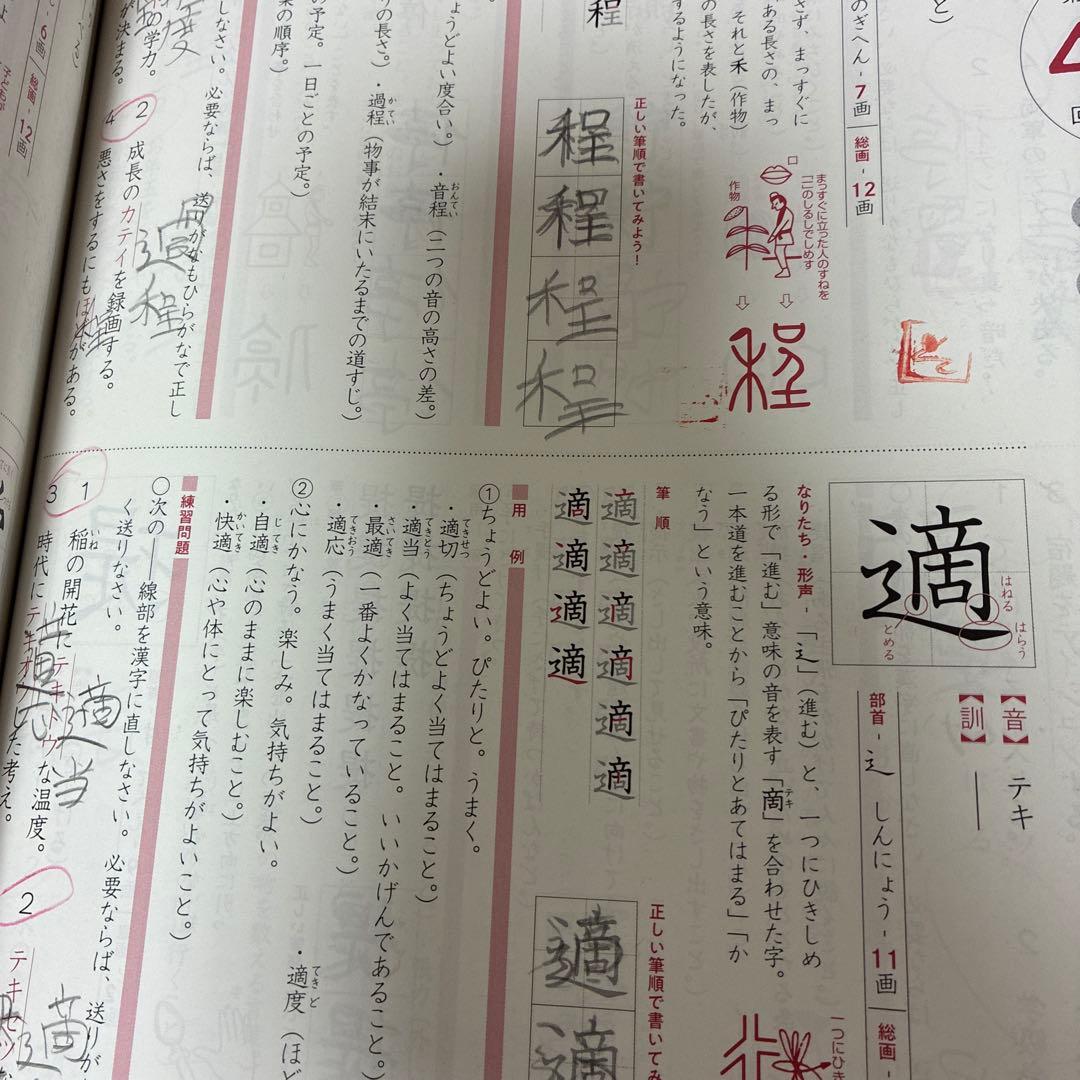 のぎへん - 7画
総画 - 12画
さず、まっすぐに
ある長さの、まっ
それと禾（作物）
の長さを表したが、
するようになった。
口
まっすぐに立った人のすねを
「一」のしるしでしめす
作物
程
正しい筆順で書いてみよう！
程
程
程
程
程
ょうどよい度合い。）
・音程（二つの音の高さの差。）
おんてい
りの長さ。）
・過程（物事が結末にいたるまでの道すじ。）
かてい
の予定。一日ごとの予定。）
業の順序。）
しなさい。必要ならば、送りがなもひらがなで正し
の学力。
が決まる。
2 成長のカテイを録画する。
過程
4 悪さをするにもほどがある。
6画
総画 - 12画
適
はねる
はらう
とめる
【音】 テキ
【訓】 ――
部首 - 辶 しんにょう - 11画
総画 -
なりたち・形声 - 「辶」（進む）と、一つにひきしめ
る形で「進む」意味の音を表す「啇」を合わせた字。
テキ
一本道を進むことから「ぴたりとあてはまる」「か
なう」という意味。
一つにひき
筆順
適適適適適適
適適適適
正しい筆順で書いてみ
適
適
用例
①ちょうどよい。ぴたりと。うまく。
・適切（ちょうどよく当てはまること。）
てきせつ
・適当（よく当てはまること。いいかげんであること。）
てきとう
・最適（一番よくかなっていること。）
さいてき
・適応（うまく当てはまること。）
てきおう
・適度（ほど
てきど
②心にかなう。楽しみ。気持ちがよい。
・自適（心のままに楽しむこと。）
じてき
・快適（心や体にとって気持ちがよいこと。）
かいてき
練習問題
〇次の――線部を漢字に直しなさい。必要ならば、送りが
く送りなさい。
1 稲の開花にテキトウな温度。
いね
適当
2
テキセツ
適
3 時代にテキオウした考え。
適応